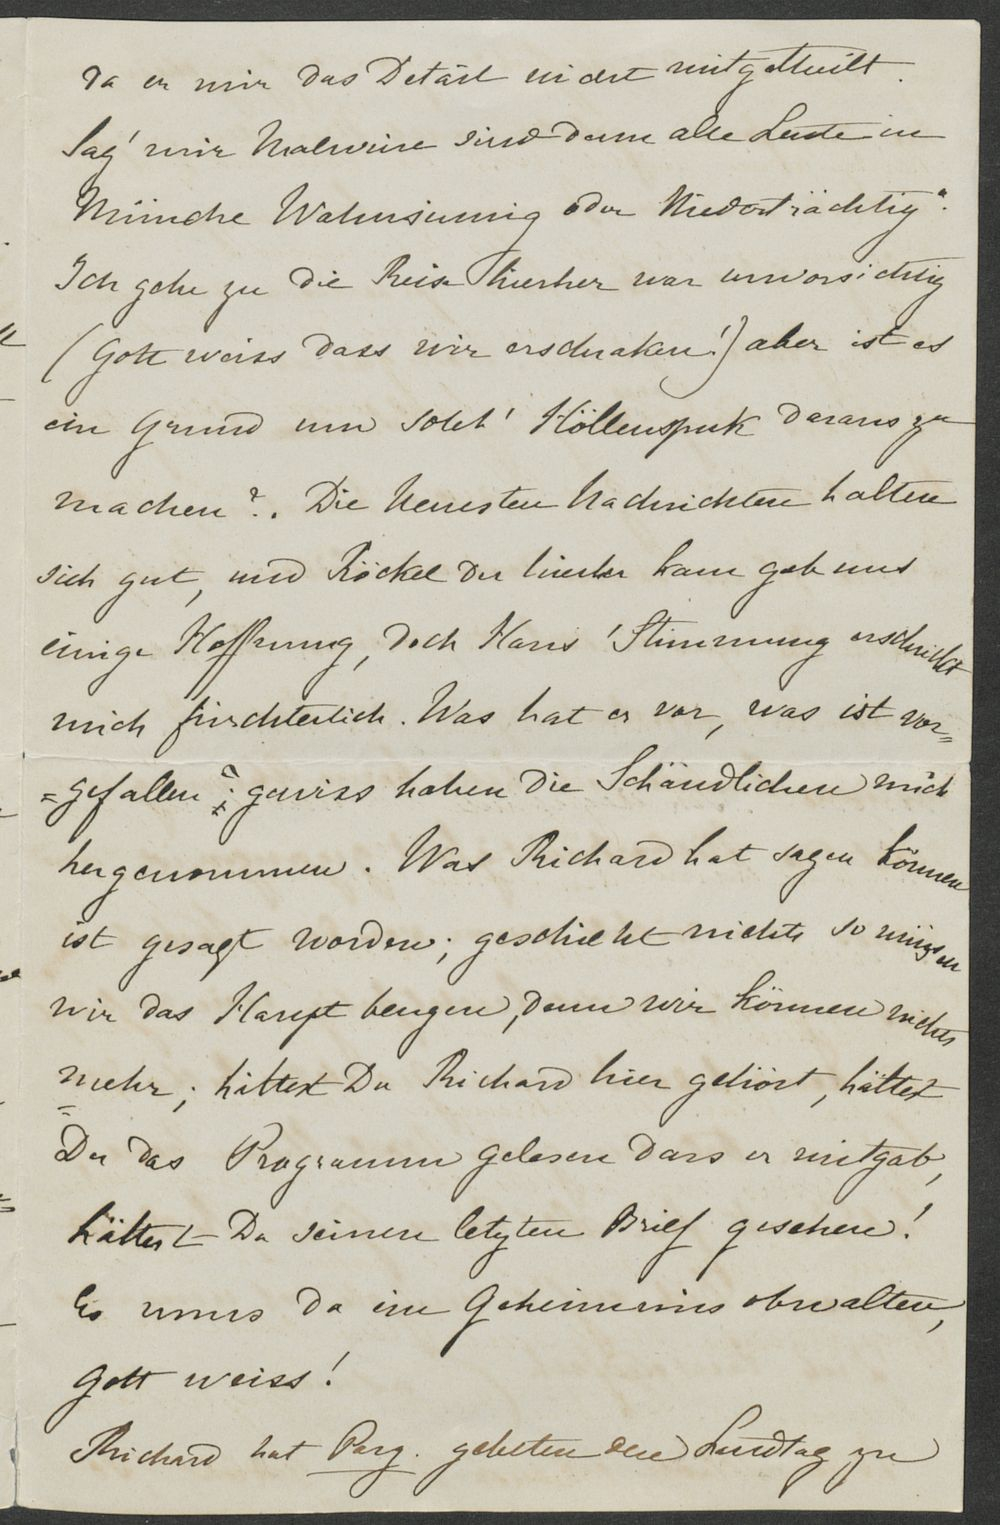 da er mir das Detail nicht mitgetheilt.
Sag' mir Malwine sind denn alle Leute in
Münche Wahnsinnig oder Niederträchtig".
Ich gebe zu die Reise hierher war unvorsichtig
(Gott weiss dass wir erschraken!) aber ist es
ein Grund um solch' Höllenspuk daraus zu
machen?. Die Neuesten Nachrichten halten
sich gut, und Röckel der hierher kam gab uns
einige Hoffnung, doch Hans' Stimmung erschrickt
mich fürchterlich. Was hat er vor, was ist vor=
=gefallen? gewiss haben die Schändlichen mich
hergenommen. Was Richard hat sagen können
ist gesagt worden; geschieht nichts so müssen
wir das Haupt beugen, denn wir können nichts
mehr; hättest Du Richard hier gehört, hättest
Du das Programm gelesen dass er mitgab,
hättest Du seinen letzten Brief gesehen!
Es muss da ein Geheimniss obwalten,
Gott weiss!
Richard hat gebeten den Landtag zu